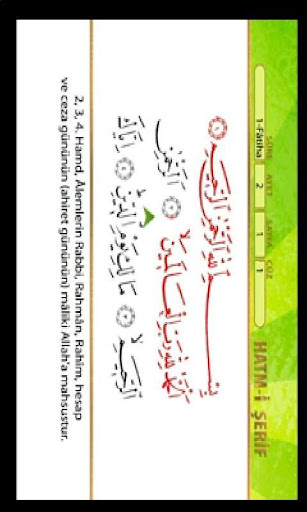 SÛRE AYET SAYFA CÜZ
1-Fâtiha 2 1 1
HATM-İ ŞERİF
بِسْمِ اللّٰهِ الرَّحْمٰنِ الرَّحِيمِ ﴿١﴾
اَلْحَمْدُ لِلّٰهِ رَبِّ الْعَالَمِينَۙ ﴿٢﴾ اَلرَّحْمٰنِ
الرَّحِيمِۙ ﴿٣﴾ مَالِكِ يَوْمِ الدِّينِۜ ﴿٤﴾ اِيَّاكَ
2, 3, 4. Hamd, Âlemlerin Rabbi, Rahmân, Rahîm, hesap
ve ceza gününün (ahiret gününün) mâliki Allah'a mahsustur.